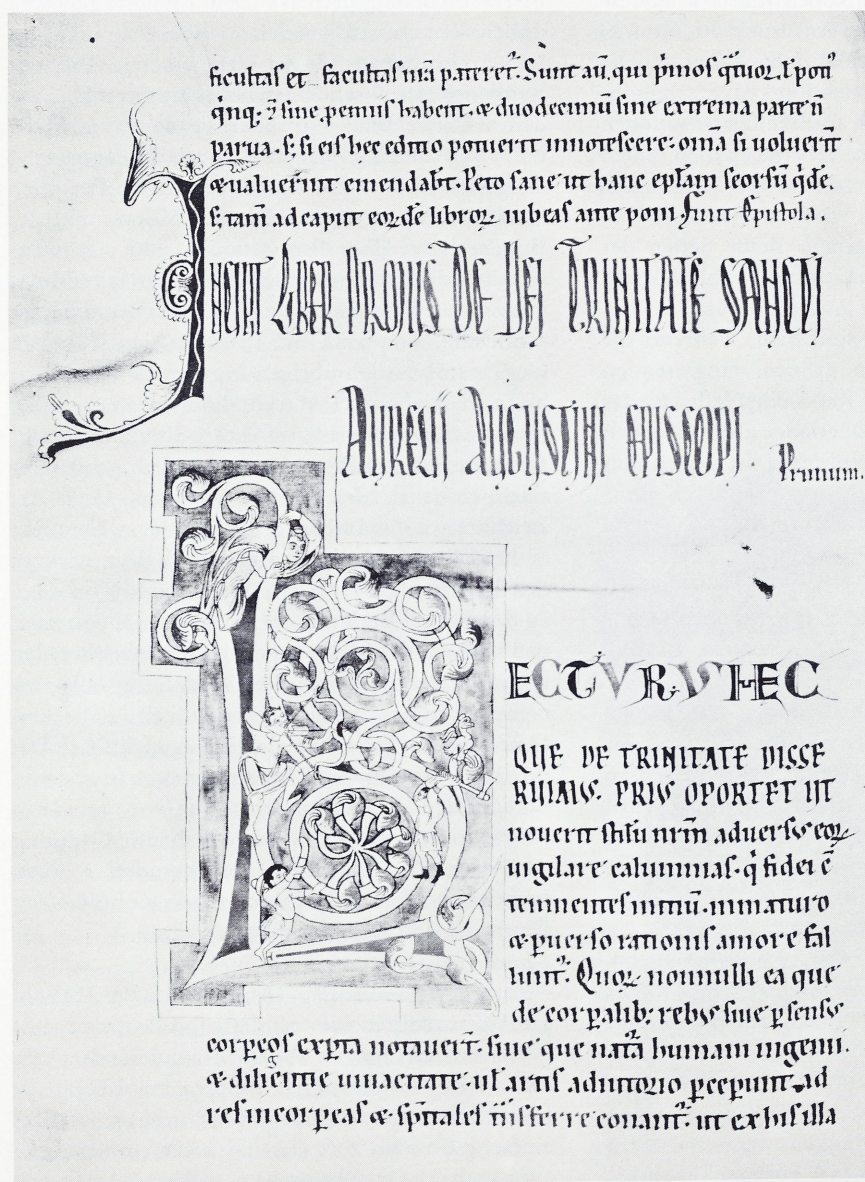 ficultas et facultas nr̄a pateret᷑. Sunt aū. qui p̄mos q̄tuor. ł poti᷑
q̇nq; sine p̱emiis habent. & duodecimū sine extrema parte n̄
parua. s; si eis hec editio potuerit innotescere. om̄a si uoluerīt
& ualuerint emendabt̄. Peto sane ut hanc ep̄łam seorsū q̇dē.
s; tam̄ ad caput eorꝝdē librorꝝ iubeas ante poni. Finit Epistola.
INCIPIT LIBER PRIMUS DE DEI TRINITATE SANCTI
AURELII AUGUSTINI EPISCOPI.
Primum.
LECTURUS HEC
QUE DE TRINITATE DISSE
RUIMUS. PRIUS OPORTET UT
nouerit stilū nr̄m aduersus eorꝝ
uigilare calumnias. q̇ fidei c̄
tempnentes initiū. inmaturo
& p̱uerso rationis amore fal
lunt᷑. Quorꝝ nonnulli ea que
de corp̱alib; rebus siue p̱ sensus
corp̱eos exp̱ta notauer̄t. siue que nat᷑a humani ingenii.
& diligentie uiuacitate. uł artis adiutorio p̱cep̱unt. ad
res incorp̱eas & sp̄itales t̄nsferre conant᷑. ut ex his illa